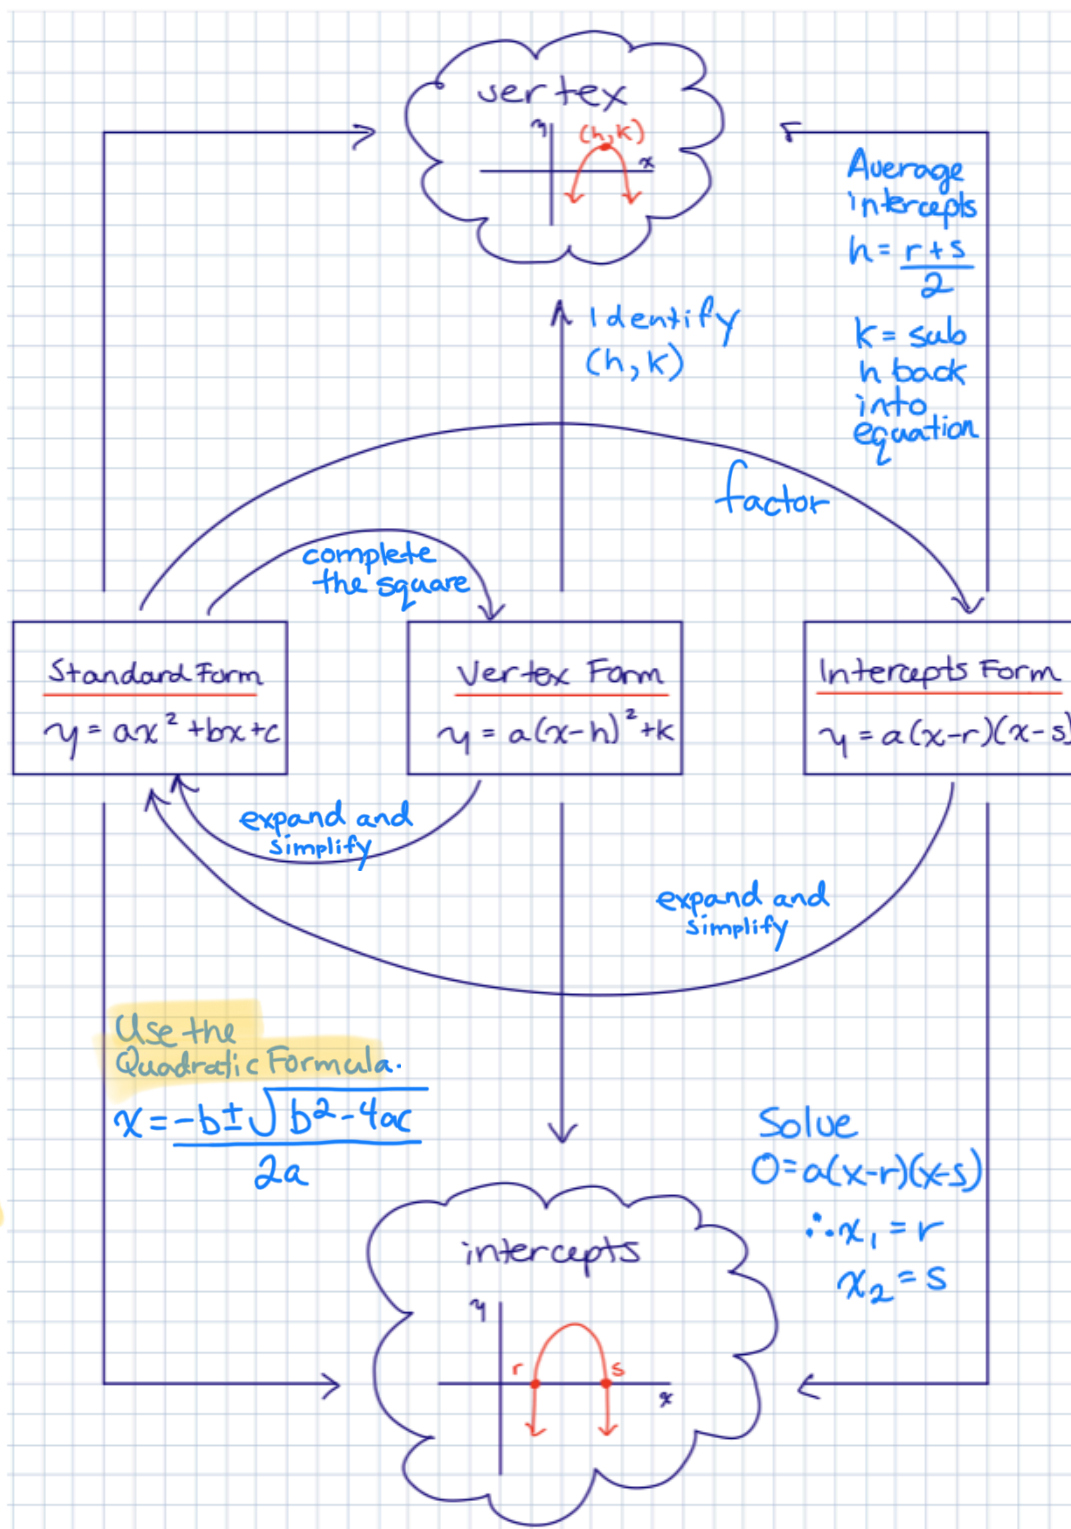 vertex
y
(h,k)
x
Average
intercepts
h = r+s
2
k = sub
h back
into
equation
Identify
(h, k)
factor
complete
the square
Standard Form
y = ax² +bx+c
Vertex Form
y = a(x-h)² +k
Intercepts Form
y = a(x-r)(x-s)
expand and
simplify
expand and
simplify
Use the
Quadratic Formula.
x = -b±√b²-4ac
2a
Solve
0=a(x-r)(x-s)
∴x₁ = r
x₂ = s
intercepts
y
r
s
x